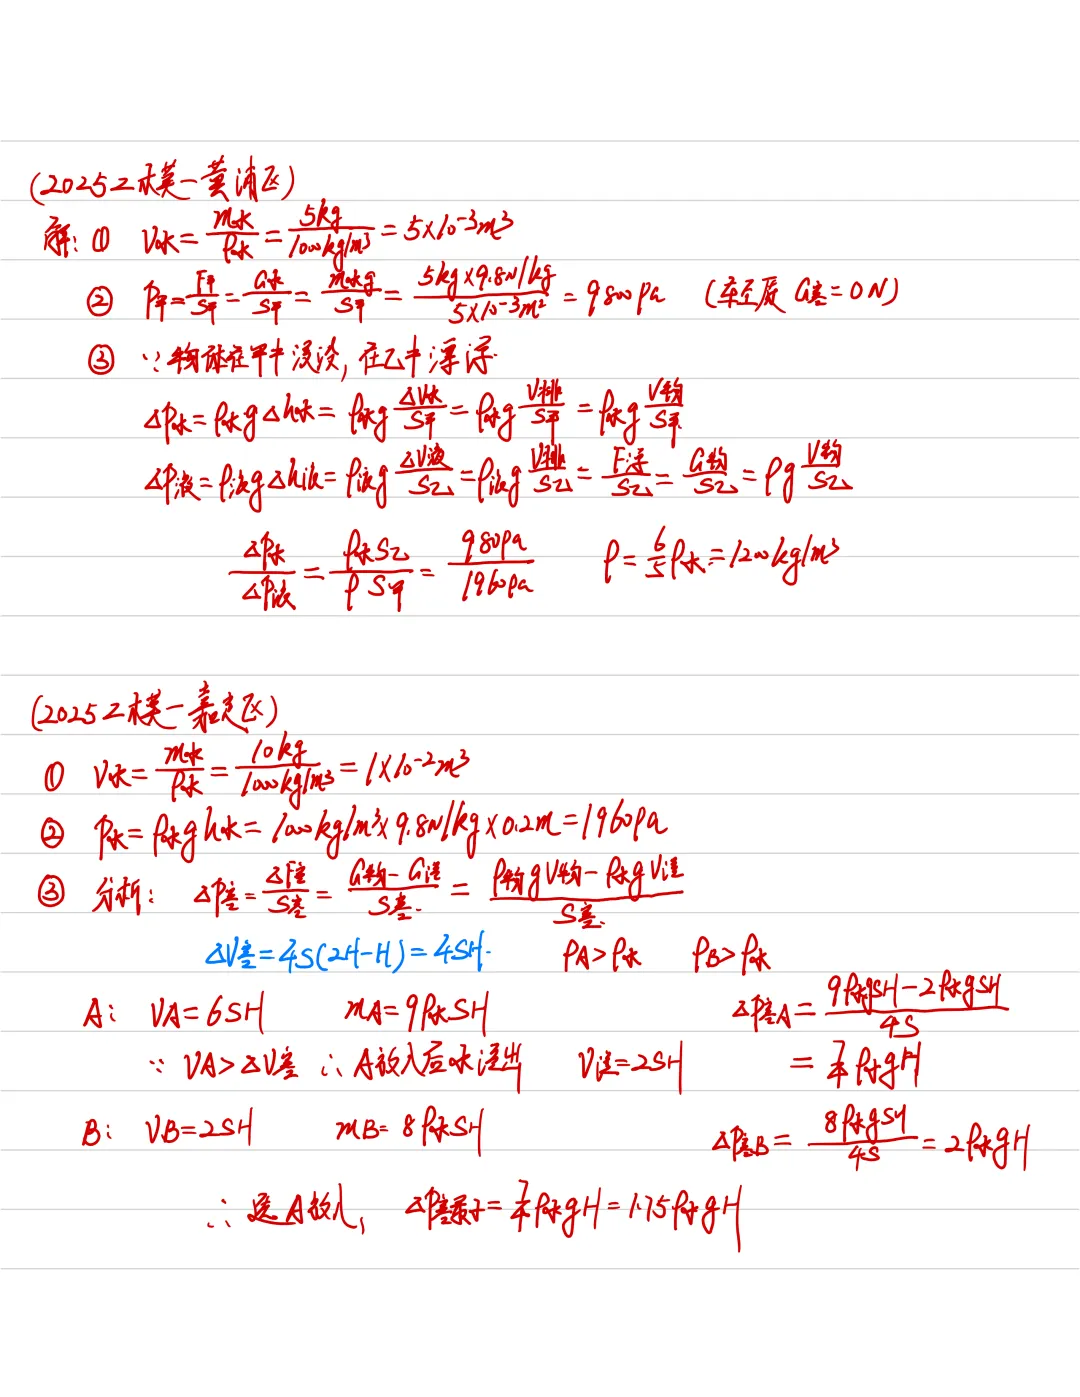 (2025二模一黄浦区)
解: ① V水 = m水/ρ水 = 5kg/1000kg/m³ = 5×10⁻³m³
② P甲 = F甲/S甲 = G水/S甲 = m水g/S甲 = 5kg×9.8N/kg/5×10⁻³m² = 9800pa (轻质 G容=0N)
③ ∵物体在甲中浸没, 在乙中漂浮.
△P水 = ρ水g△h水 = ρ水g △V水/S甲 = ρ水g V排/S甲 = ρ水g V物/S甲
△P液 = ρ液g△h液 = ρ液g △V液/S乙 = ρ液g V排/S乙 = F浮/S乙 = G物/S乙 = ρg V物/S乙
△P水/△P液 = ρ水S乙/ρS甲 = 980pa/1960pa ρ = 6/5 ρ水 = 1200kg/m³
(2025二模一嘉定区)
① V水 = m水/ρ水 = 10kg/1000kg/m³ = 1×10⁻²m³
② P水 = ρ水gh水 = 1000kg/m³×9.8N/kg×0.2m = 1960pa
③ 分析: △P容 = △F容/S容 = G物-G溢/S容. = ρ物gV物-ρ水gV溢/S容.
△V容 = 4S(2H-H) = 4SH. ρA>ρ水 ρB>ρ水
A: VA=6SH mA=9ρ水SH △P容A = 9ρ水gSH-2ρ水gSH/4S
∵ VA>△V容 ∴A放入后水溢出 V溢=2SH = 7/4 ρ水gH
B: VB=2SH mB=8ρ水SH △P容B = 8ρ水gSH/4S = 2ρ水gH
∴选A放入, △P容最小 = 7/4 ρ水gH = 1.75ρ水gH